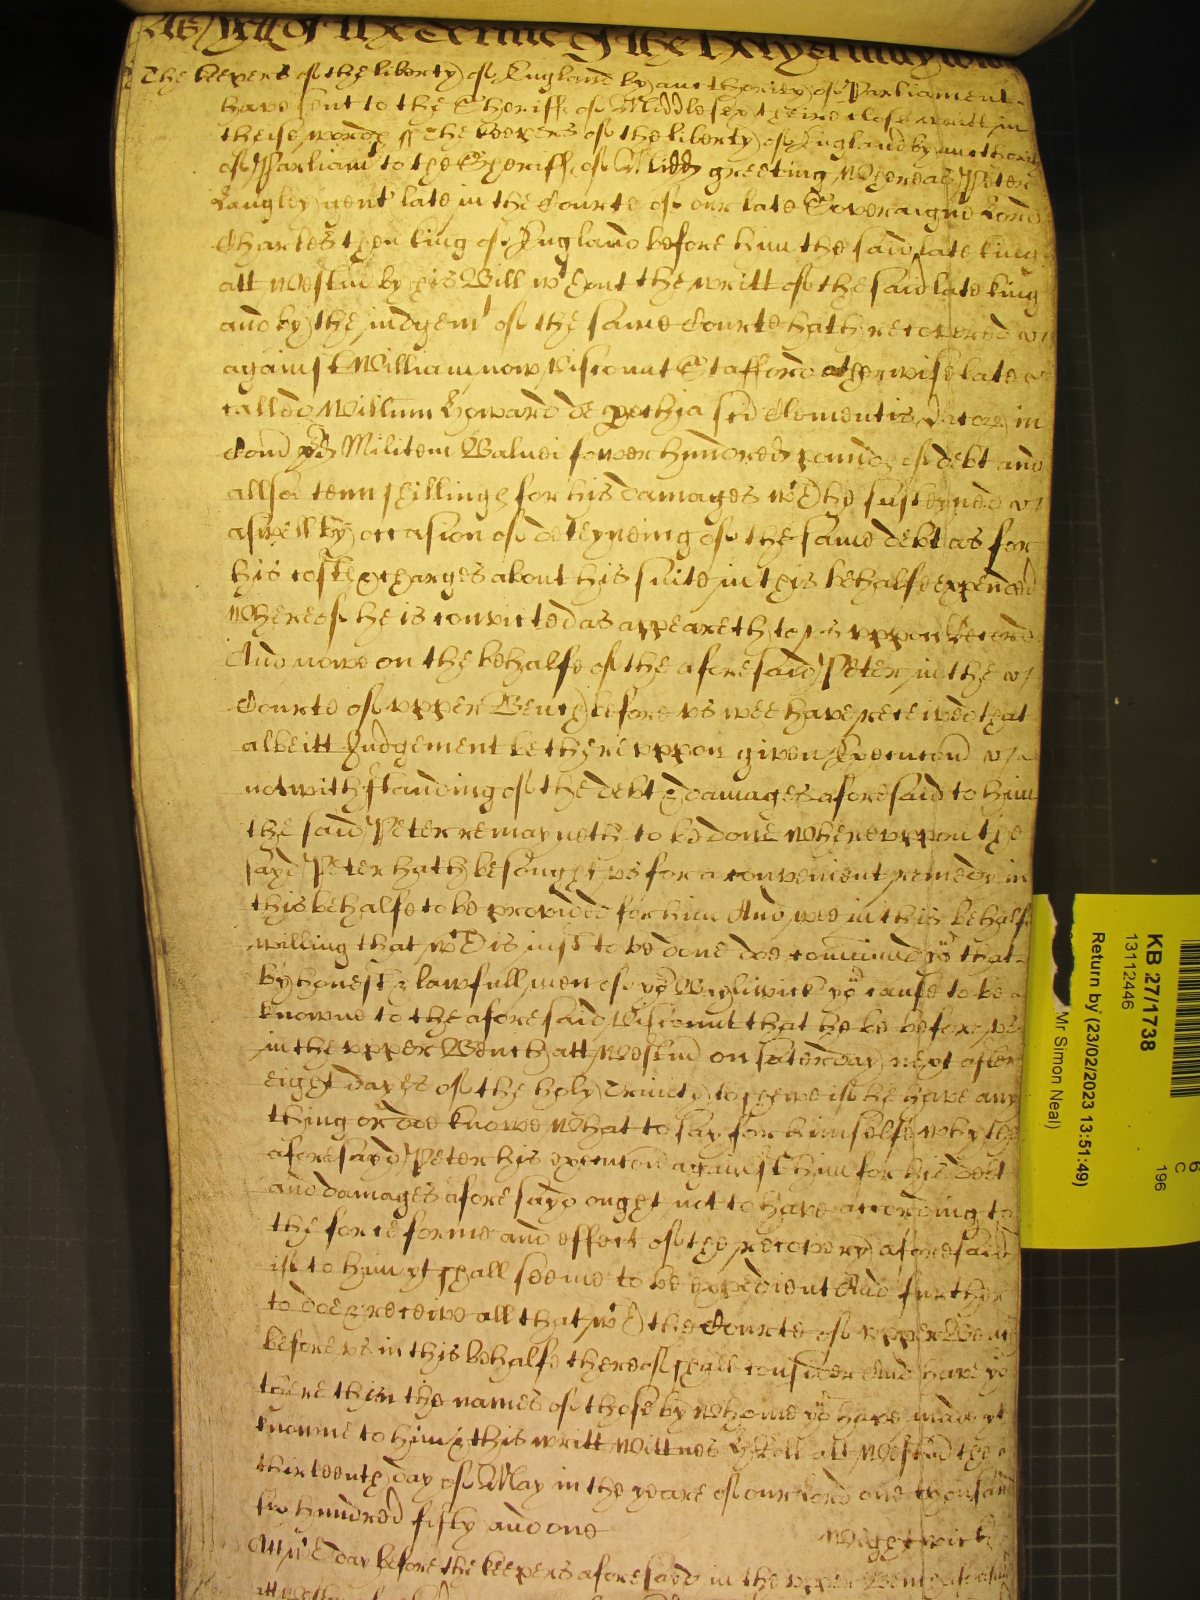 As yett of the Terme of the Holy Trinity
The keepers of the liberty of England by aucthority of Parliament
have sent to the Sheriffe of Middlesex theire close writt in
theise words ss The keepers of the liberty of England by aucthority
of Parliamt to the Sheriffe of Midds greeting Whereas Peter
Langley gent late in the Courte of our late Soveraigne Lord
Charles then king of England before him the said late king
att Westm by his Bill wthout the writt of the said late king
and by the judgemt of the same Courte hath recovered
against William now Viscount Stafford otherwise late
called Willum Howard de pochia sci Clementis Dacor in
Com Midd Militem Balnei fower hundred pounds of debt and
allsoe tenn shillings for his damages wch he susteyned
aswell by occasion of deteyneing of the same debt as for
his costs & charges about his suite in this behalfe expended
Whereof he is convicted as appeareth to us uppon Record
And nowe on the behalfe of the aforesaid Peter in the
Courte of upper Bench before us wee have received that
albeitt Judgement be thereuppon given Execucon
notwithstanding of the debt & damages aforesaid to him
the said Peter remayneth to be done Whereuppon the
sayd Peter hath besought us for a convenient remedy in
this behalfe to be provided for him And wee in this behalfe
willing that wch is just to be done doe comaund yo that
by honest & lawfull men of yor Bayliwick yo cause to be
knowne to the aforesaid Viscount that he be before us
in the upper Bench att Westm on Saterday next after
eight dayes of the holy Trinity to shewe if he have any
thing or doe knowe What to say for himselfe why the
aforesayd Peter his execucon against him for his debt
and damages aforesayd ought not to have according to
the force forme and effect of the recovery aforesaid
if to him yt shall seeme to be expedient And further
to doe & receive all that wch the Courte of upper Bench
before us in this behalfe thereof shall consider And have yo
there then the names of those by Whome yo have made yt
knowne to him & this writt Wittnes H Roll att Westm the
thirteenth day of May in the yeare of our Lord one thousand
six hundred fifty and one
Att wch day before the keepers aforesayd in the upper Bench
KB 27/1738
13112446
Return by (23/02/2023 13:51:49)
Mr Simon Neal)
196
6
C